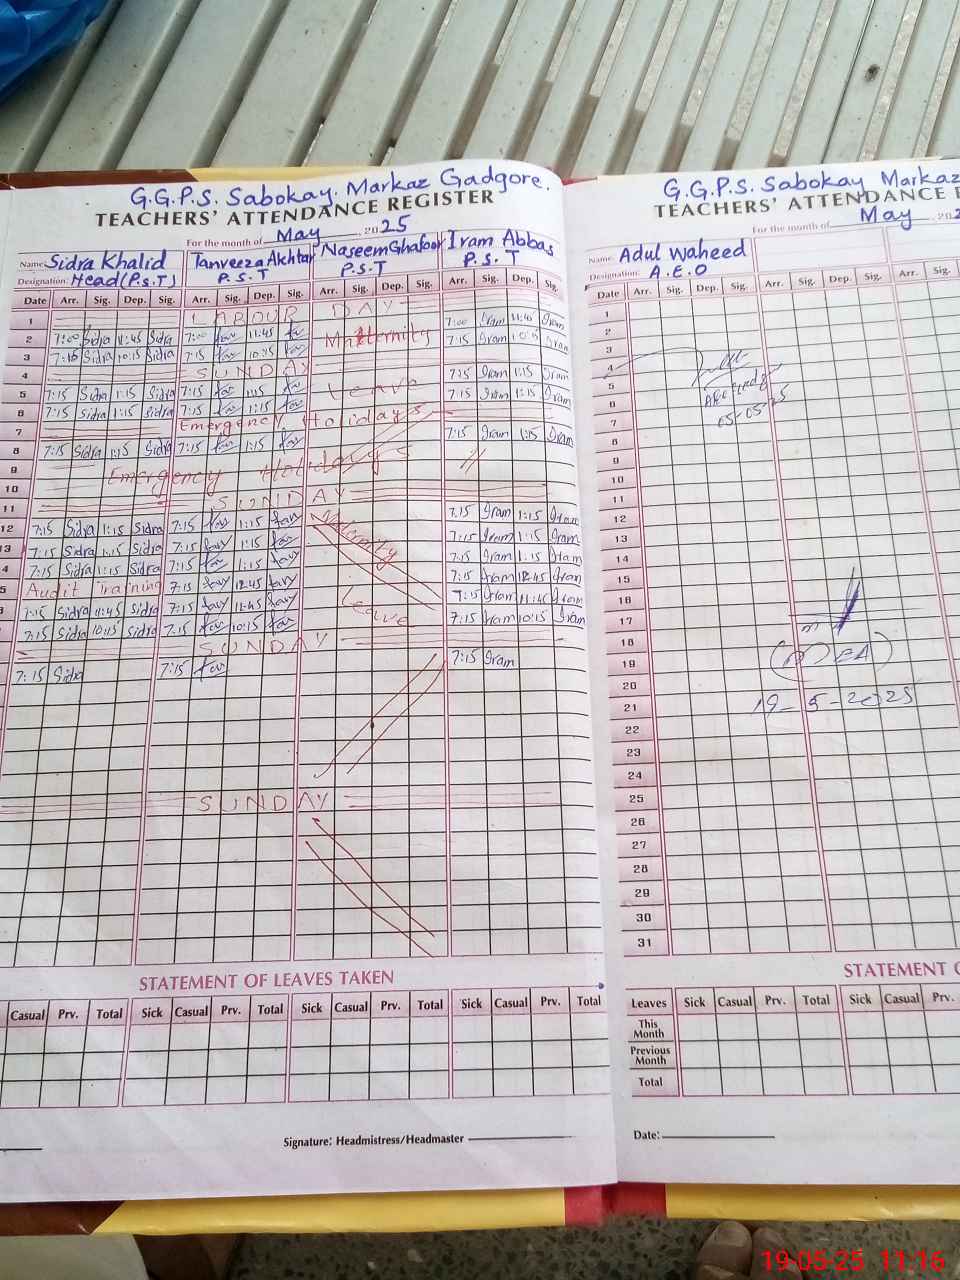 G.G.P.S. Sabokay. Markaz Gadgore.
TEACHERS' ATTENDANCE REGISTER
For the month of May, 2025
Name: Sidra Khalid Tanveeza Akhtar Naseem Ghafoor Iram Abbas
Designation: Head (P.S.T) P.S.T P.S.T P.S.T
Date Arr. Sig. Dep. Sig. Arr. Sig. Dep. Sig. Arr. Sig. Dep. Sig. Arr. Sig. Dep. Sig.
1 LABOUR DAY
2 7:00 Sidra 11:45 Sidra 7:00 11:45 Maternity 7:00 Iram 11:45 Iram
3 7:15 Sidra 10:15 Sidra 7:15 10:15 7:15 Iram Iram
4 SUNDAY
5 7:15 Sidra 1:15 Sidra 7:15 1:15 Leave 7:15 Iram 1:15 Iram
6 7:15 Sidra 1:15 Sidra 7:15 1:15 7:15 Iram 1:15 Iram
7 Emergency Holidays
8 7:15 Sidra 1:15 Sidra 7:15 1:15 7:15 Iram 1:15 Iram
9 Emergency Holidays
10
11 SUNDAY
12 7:15 Sidra 1:15 Sidra 7:15 1:15 7:15 Iram 1:15 Iram
13 7:15 Sidra 1:15 Sidra 7:15 1:15 7:15 Iram 1:15 Iram
4 7:15 Sidra 1:15 Sidra 7:15 1:15 7:15 Iram 1:15 Iram
5 Audit Training 7:15 12:45 7:15 Iram 12:45 Iram
7:15 Sidra 11:45 Sidra 7:15 11:45 Leave 7:15 Iram 11:45 Iram
7:15 Sidra 10:15 Sidra 7:15 10:15 7:15 Iram 10:15 Iram
SUNDAY
7:15 Sidra 7:15 7:15 Iram
SUNDAY
STATEMENT OF LEAVES TAKEN
Casual Prv. Total Sick Casual Prv. Total Sick Casual Prv. Total Sick Casual Prv. Total
Signature: Headmistress/Headmaster
G.G.P.S. Sabokay Markaz
TEACHERS' ATTENDANCE
For the month of May, 202
Name: Adul Waheed
Designation: A.E.O
Date Arr. Sig. Dep. Sig. Arr. Sig. Dep. Sig. Arr.
1
2
3
4
5
6
7
8
9
10
11
12
13
14
15
16
17
18
19
20
21
22
23
24
25
26
27
28
29
30
31
05-05-25
(MEA)
19-5-2025
STATEMENT
Leaves Sick Casual Prv. Total Sick Casual Prv.
This Month
Previous Month
Total
Date:
19-05-25 11:16